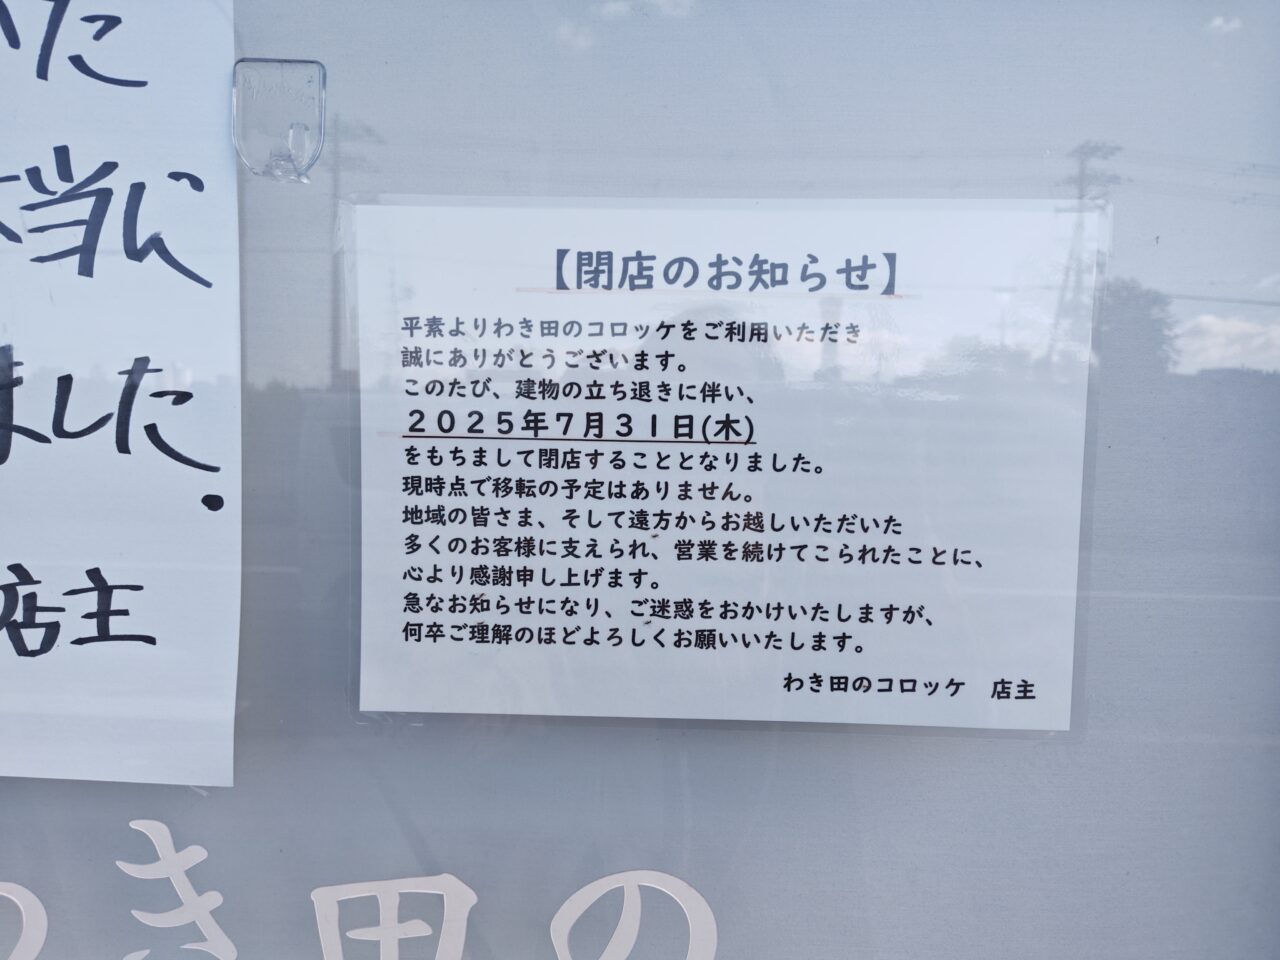 いた
当に
ました.
店主
【閉店のお知らせ】
平素よりわき田のコロッケをご利用いただき
誠にありがとうございます。
このたび、建物の立ち退きに伴い、
２０２５年７月３１日(木)
をもちまして閉店することとなりました。
現時点で移転の予定はありません。
地域の皆さま、そして遠方からお越しいただいた
多くのお客様に支えられ、営業を続けてこられたことに、
心より感謝申し上げます。
急なお知らせになり、ご迷惑をおかけいたしますが、
何卒ご理解のほどよろしくお願いいたします。
わき田のコロッケ　店主
わき田の